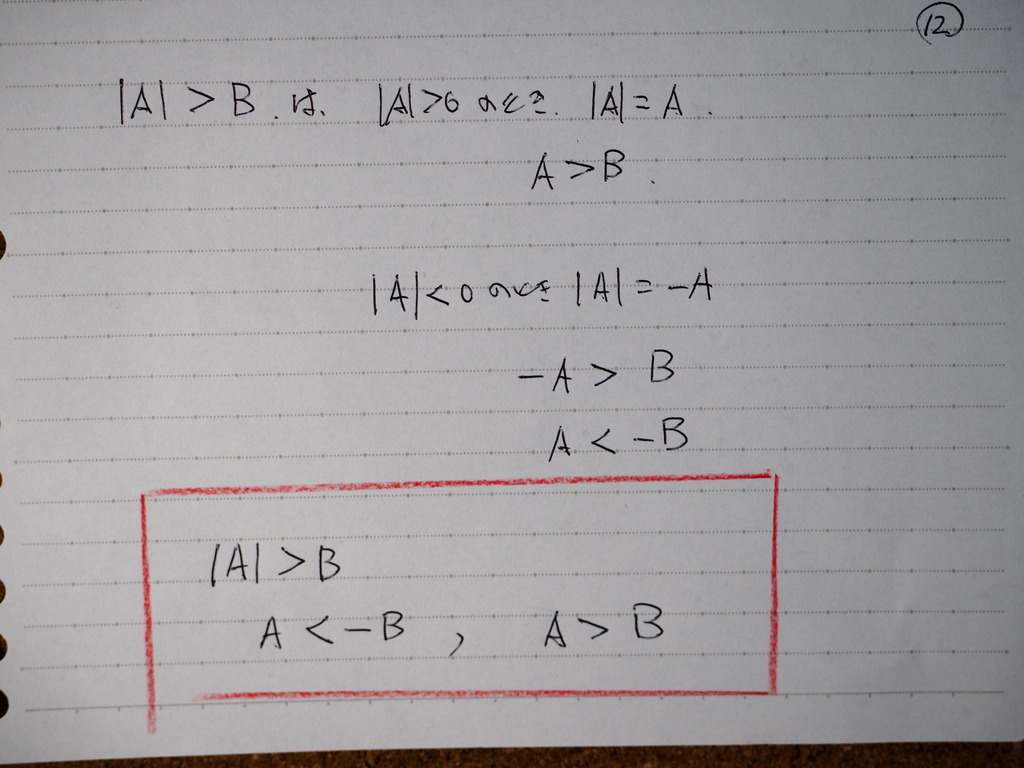 ⑫
|A| > B. は、 |A|>0 のとき. |A| = A.
A > B.
|A| < 0 のとき |A| = -A
-A > B
A < -B
|A| > B
A < -B , A > B